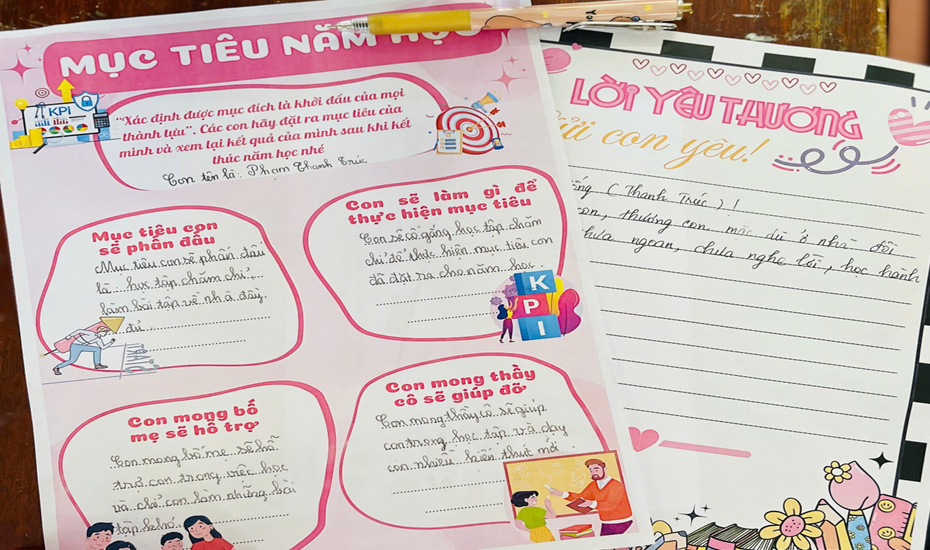 MỤC TIÊU NĂM HỌC
KPI
"Xác định được mục đích là khởi đầu của mọi
thành tựu". Các con hãy đặt ra mục tiêu của
mình và xem lại kết quả của mình sau khi kết
thúc năm học nhé
Con tên là: Phạm Thanh Trúc
Mục tiêu con
sẽ phấn đấu
Mục tiêu con sẽ phấn đấu
là học tập chăm chỉ,
làm bài tập về nhà đầy
đủ
Con sẽ làm gì để
thực hiện mục tiêu
Con sẽ cố gắng học tập chăm
chỉ để thực hiện mục tiêu con
đã đặt ra cho năm học
K
P
I
Con mong bố
mẹ sẽ hỗ trợ
Con mong bố mẹ sẽ hỗ
trợ con trong việc học
và chỉ con làm những bài
tập khó
Con mong thầy
cô sẽ giúp đỡ
Con mong thầy cô sẽ giúp
con trong học tập và dạy
con nhiều kiến thức mới
LỜI YÊU THƯƠNG
gửi con yêu!
(Thanh Trúc)!
con, thương con, mặc dù ở nhà đôi
chưa ngoan, chưa nghe lời, học hành